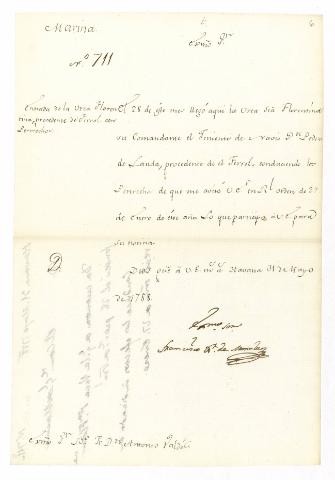 Marina
6
Exmo. Sor.
No. 711
Entrada de la Urca Florentina, procedente de Ferrol con Pertrechos
El 28 de este mes llegó aqui la Urca Sta. Florentina
su Comandante el Teniente de Navio Dn. Pedro
de Landa, procedente de el Ferrol, conduciendo los
Pertrechos de que me avisó V.E. en Rl. orden de 27
de Enero de este año Lo que participo à V.E. para
su noticia.
D.
Dios gue. à V.E. ms. as. Havana 31 de Mayo
de 1788.
Exmo. Sor.
Francisco
Exmo. Sor. Bo. Fr. Dn. Antonio Valdés